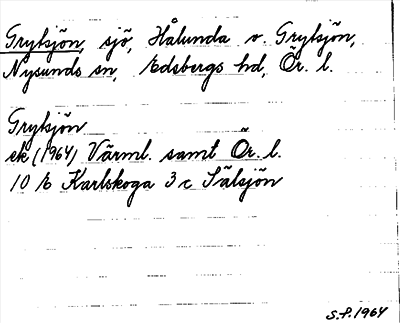 Grytsjön, sjö, Hålunda v. Grytsjön,
Nysunds sn, Edsbergs hd, Ör. l.
Grytsjön
ek (1964) Värml. samt Ör. l.
10 E Karlskoga 3 c Sälsjön
S.F. 1964